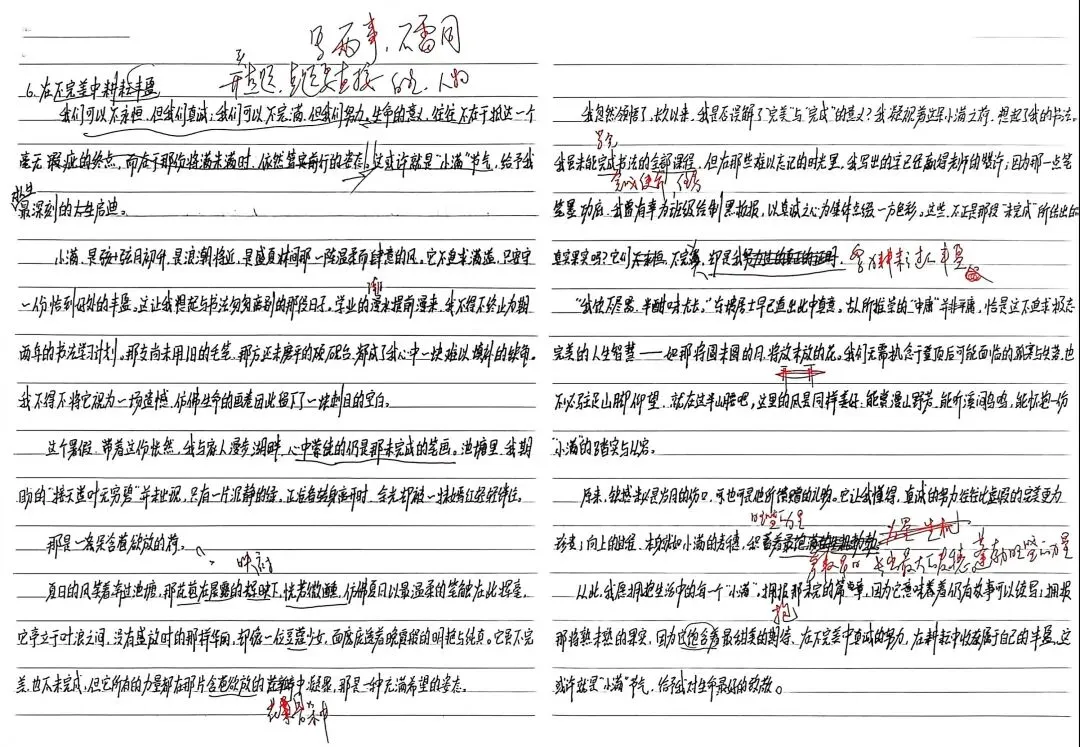 写两事，不雷同
开头到主题，主题要直接 的，人物
6.在不完美中耕耘丰盈
我们可以不永恒，但我们真诚；我们可以不完满，但我们努力。生命的意义，往往不在于抵达一个
毫无瑕疵的终点，而在于那份将满未满时，依然笃实前行的姿态！这或许就是“小满”节气，给予我
最深刻的人生启迪。
小满，是弦月初升，是浪潮将近，是盛夏林间那一阵温柔而肆意的风。它不追求满溢，只葆守
一份恰到好处的丰盈。这让我想起与书法匆匆告别的那段日子。学业的潮水提前漫来，我不得不终止为期
两年的书法学习计划。那支尚未用旧的毛笔，那方还未磨平的砚台，都成了我心中一块难以填补的缺角。
我不得不将它视为一场遗憾，仿佛生命的画卷因此留下了一块刺目的空白。
这个暑假，带着这份怅然，我与家人漫步湖畔，心中萦绕的仍是那未完成的笔画。池塘里，我期
盼的“接天莲叶无穷碧”并未出现，只有一片沉静的绿。正当转身离开时，余光却被一抹嫣红轻轻绊住。
那是一朵含苞欲放的荷。
映衬
夏日的风笑着穿过池塘，那花苞在晨露的轻吻下，恍若微醺，仿佛夏日以最温柔的笔触在此择毫。
它亭立于叶浪之间，没有盛放时的那样华丽，却像一位豆蔻少女，面庞后透着晓真般的明艳与纯真。它虽不完
美，也不未完成，但它所有的力量都在那片含苞欲放的花瓣中凝聚，那是一种充满希望的姿态。
我忽然领悟了，长久以来，我是否误解了“完美”与“完成”的意义？我凝视着这朵小满之荷，想起了我的书法。
虽
我虽未能完成书法的全部课程，但在那些难以忘记的时光里，我写出的字已经赢得老师的赞许；因为那一点笔
笔墨功底，我曾有幸为班级绘制黑板报，以真诚之心为集体点缀一方色彩。这些，不正是那段“未完成”所结出的
真实果实吗？它们不永恒，不完满，却是我努力过的真正的证明。
“我饮不尽器，半酣味尤长。”东坡居士早已道出此中真意。古人所推崇的“中庸”并非平庸，恰是这不追求极态
完美的人生智慧——如那将圆未圆的月，将放未放的花。我们无需执念于登顶后可能面临的孤寂与失落，也
不必驻足山脚仰望，就在这半山腰吧，这里的风景同样美好：能赏漫山野芳，能听溪间鸟鸣，能怀抱一份
“小满”的踏实与从容。
原来，缺憾未必是岁月的伤口，亦也可是她所馈赠的礼物。它让我懂得，真诚的努力往往比虚假的完美更为
珍贵；向上的过程，本身就如小满的麦穗，
从此，我愿拥抱生活中的每一个“小满”。拥抱那未完的篇章，因为它意味着仍有故事可以续写；拥抱
抱
那将熟未熟的果实，因为它饱含着最甜美的期待。在不完美中真诚的努力，在耕耘中收获属于自己的丰盈，这
或许就是“小满”节气，给予我对生命最好的勉励。